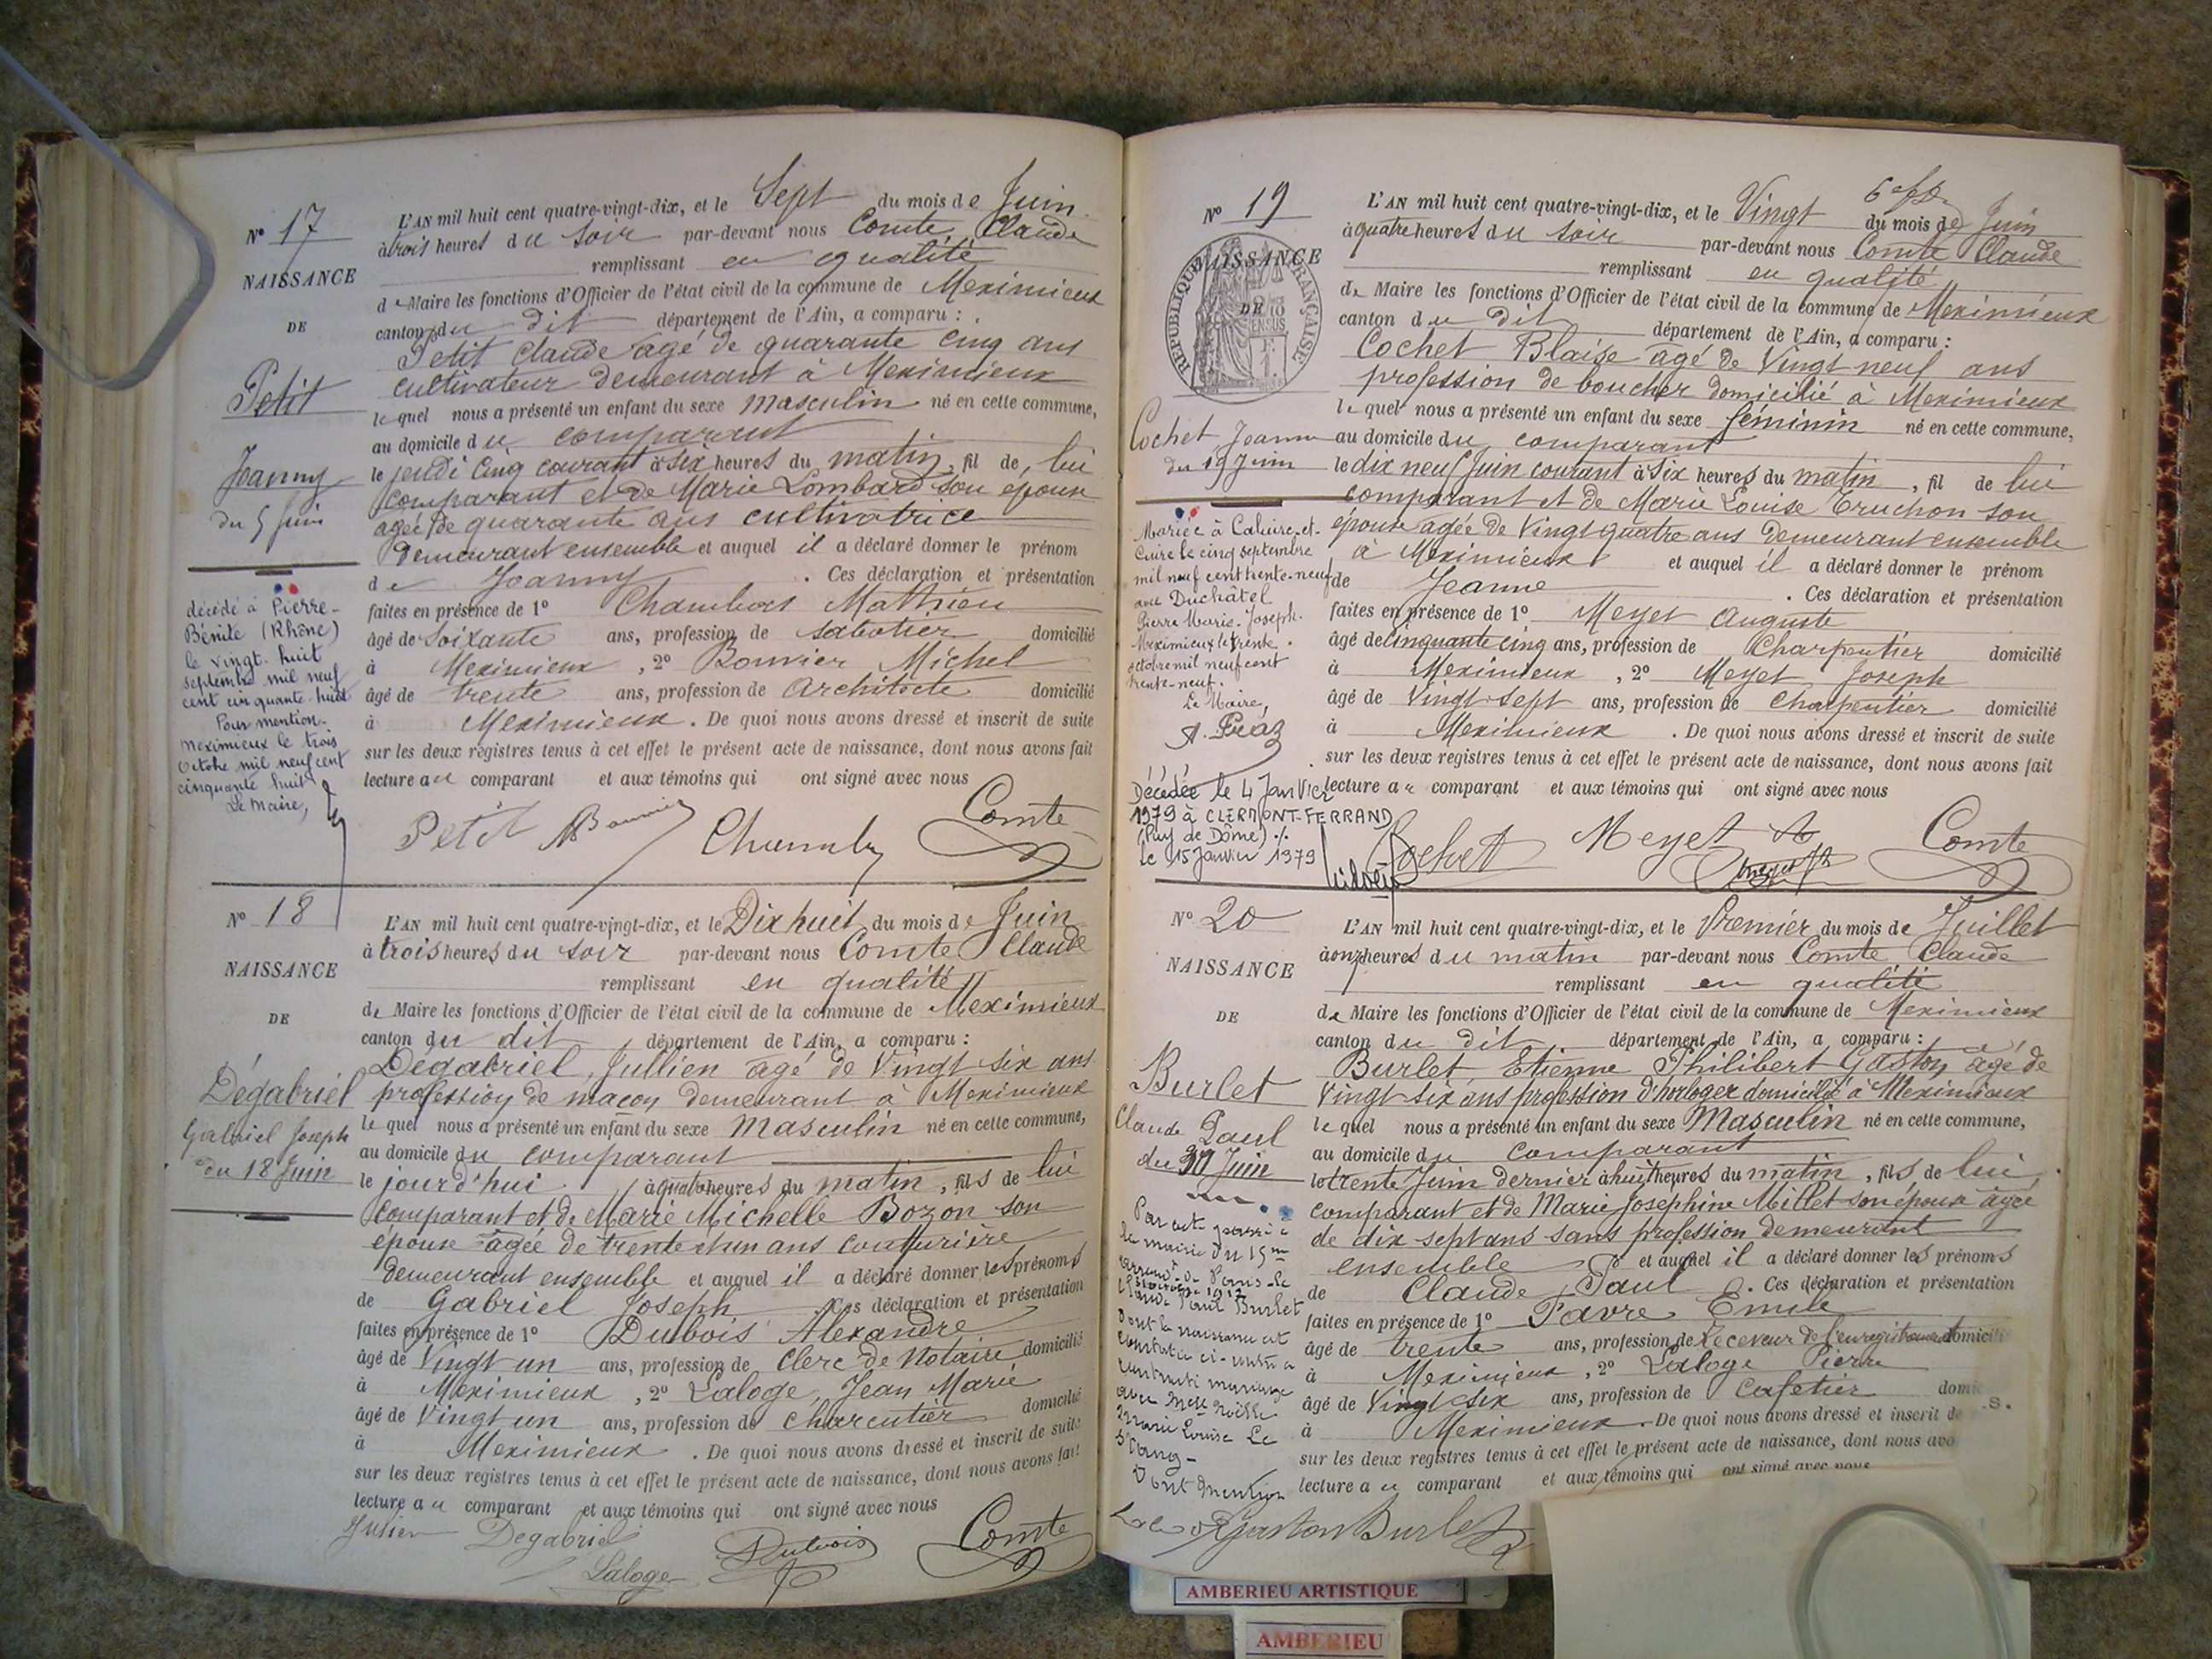 N° 17
NAISSANCE
DE
Petit
Joanny
du 5 Juin
décédé à Pierre-
Bénite (Rhône)
le vingt-huit
septembre mil neuf
cent cinquante huit
Pour mention.
Meximieux le trois
Octobre mil neuf cent
cinquante huit
Le Maire,
L'AN mil huit cent quatre-vingt-dix, et le Sept du mois de Juin
à trois heures du soir par-devant nous Comte, Claude
remplissant en qualité
de Maire les fonctions d'Officier de l'état civil de la commune de Meximieux
canton du dit département de l'Ain, a comparu :
Petit Claude agé de quarante cinq ans
cultivateur demeurant à Meximieux
lequel nous a présenté un enfant du sexe masculin né en cette commune,
au domicile du comparant
le jeudi cinq courant à six heures du matin, fil de lui
comparant et de Marie Lombard son épouse
agée de quarante ans cultivatrice
demeurant ensemble et auquel il a déclaré donner le prénom
de Joanny . Ces déclaration et présentation
faites en présence de 1° Chambois Mathieu
âgé de soixante ans, profession de sabotier domicilié
à Meximieux , 2° Bouvier Michel
âgé de trente ans, profession de Architecte domicilié
à Meximieux . De quoi nous avons dressé et inscrit de suite
sur les deux registres tenus à cet effet le présent acte de naissance, dont nous avons fait
lecture au comparant et aux témoins qui ont signé avec nous
Petit Bouvier Comte
N° 18
NAISSANCE
DE
Dégabriel
Gabriel Joseph
du 18 Juin
L'AN mil huit cent quatre-vingt-dix, et le Dix huit du mois de Juin
à trois heures du soir par-devant nous Comte Claude
remplissant en qualité
de Maire les fonctions d'Officier de l'état civil de la commune de Meximieux
canton du dit département de l'Ain, a comparu :
Dégabriel, Jullien agé de Vingt six ans
profession de maçon demeurant à Meximieux
lequel nous a présenté un enfant du sexe masculin né en cette commune,
au domicile du comparant
le jourd'hui à quatre heures du matin, fils de lui
comparant et de Marie Michelle Bozon son
épouse agée de trente et un ans couturière
demeurant ensemble et auquel il a déclaré donner les prénoms
de Gabriel Joseph . Ces déclaration et présentation
faites en présence de 1° Dubois Alexandre
âgé de Vingt un ans, profession de clerc de Notaire domicilié
à Meximieux , 2° Laloge, Jean Marie
âgé de Vingt un ans, profession de charcutier domicilié
à Meximieux . De quoi nous avons dressé et inscrit de suite
sur les deux registres tenus à cet effet le présent acte de naissance, dont nous avons fait
lecture au comparant et aux témoins qui ont signé avec nous
Julien Degabriel Dubois Comte
Laloge
N° 19
NAISSANCE
DE
RÉPUBLIQUE FRANÇAISE
Cochet Jeanne
du 19 Juin
Mariée à Caluire-et-
Cuire le cinq septembre
mil neuf cent trente-neuf
avec Duchâtel
Pierre Marie-Joseph.
Meximieux le trente
octobre mil neuf cent
trente-neuf.
Le Maire,
Décédée le 4 Janvier
1979 à CLERMONT-FERRAND
(Puy de Dôme) ./.
Le 15 Janvier 1979
L'AN mil huit cent quatre-vingt-dix, et le Vingt du mois de Juin
à quatre heures du soir par-devant nous Comte Claude
remplissant en qualité
de Maire les fonctions d'Officier de l'état civil de la commune de Meximieux
canton du dit département de l'Ain, a comparu :
Cochet Blaise agé de Vingt neuf ans
profession de boucher domicilié à Meximieux
lequel nous a présenté un enfant du sexe féminin né en cette commune,
au domicile du comparant
le dix neuf Juin courant à six heures du matin, fil de lui
comparant et de Marie Louise Truchon son
épouse agée de Vingt quatre ans demeurant ensemble
à Meximieux et auquel il a déclaré donner le prénom
de Jeanne . Ces déclaration et présentation
faites en présence de 1° Meyet Auguste
âgé de cinquante cinq ans, profession de Charpentier domicilié
à Meximieux , 2° Meyet Joseph
âgé de Vingt sept ans, profession de Charpentier domicilié
à Meximieux . De quoi nous avons dressé et inscrit de suite
sur les deux registres tenus à cet effet le présent acte de naissance, dont nous avons fait
lecture au comparant et aux témoins qui ont signé avec nous
Cochet Meyet Comte
N° 20
NAISSANCE
DE
Burlet
Claude Paul
du 30 Juin
Par acte passé à
la mairie du 15me
arrond. de Paris le
Claude Paul Burlet
dont la naissance est
constatée ci-contre a
contracté mariage
avec Melle Noëlle
Marie Louise Le
Dont mention
L'AN mil huit cent quatre-vingt-dix, et le Premier du mois de Juillet
à onze heures du matin par-devant nous Comte Claude
remplissant en qualité
de Maire les fonctions d'Officier de l'état civil de la commune de Meximieux
canton du dit département de l'Ain, a comparu :
Burlet, Etienne Philibert Gaston âgé de
Vingt six ans profession d'horloger domicilié à Meximieux
lequel nous a présenté un enfant du sexe Masculin né en cette commune,
au domicile du comparant
le trente Juin dernier à huit heures du matin, fils de lui
comparant et de Marie Josephine Millet son épouse âgée
de dix sept ans sans profession demeurant
ensemble et auquel il a déclaré donner les prénoms
de Claude Paul . Ces déclaration et présentation
faites en présence de 1° Favre Emile
âgé de trente ans, profession de Receveur de l'enregistrement domicili
à Meximieux , 2° Laloge Pierre
âgé de Vingt six ans, profession de Cafetier domi
à Meximieux . De quoi nous avons dressé et inscrit de
sur les deux registres tenus à cet effet le présent acte de naissance, dont nous avo
lecture au comparant et aux témoins qui ont signé avec nous
Gaston Burlet
AMBERIEU ARTISTIQUE
AMBERIEU